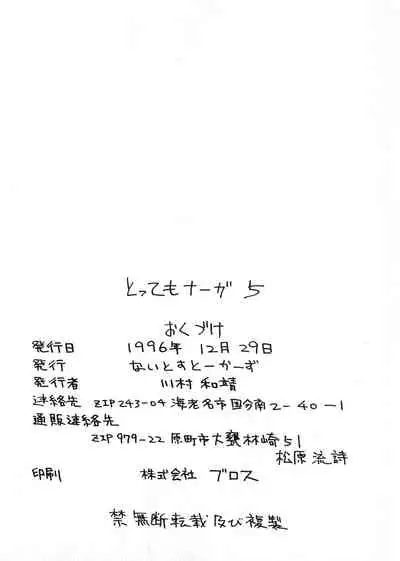 とってもナーガ 5
おくづけ
発行日 1996年 12月 29日
発行 ないとすとーかーず
発行者 川村 和靖
連絡先 ZIP 243-04 海老名市国分南2-40-1
通販連絡先
ZIP 979-22 原町市大甕林崎51
松原 流詩
印刷 株式会社 ブロス
禁 無断転載及び複製